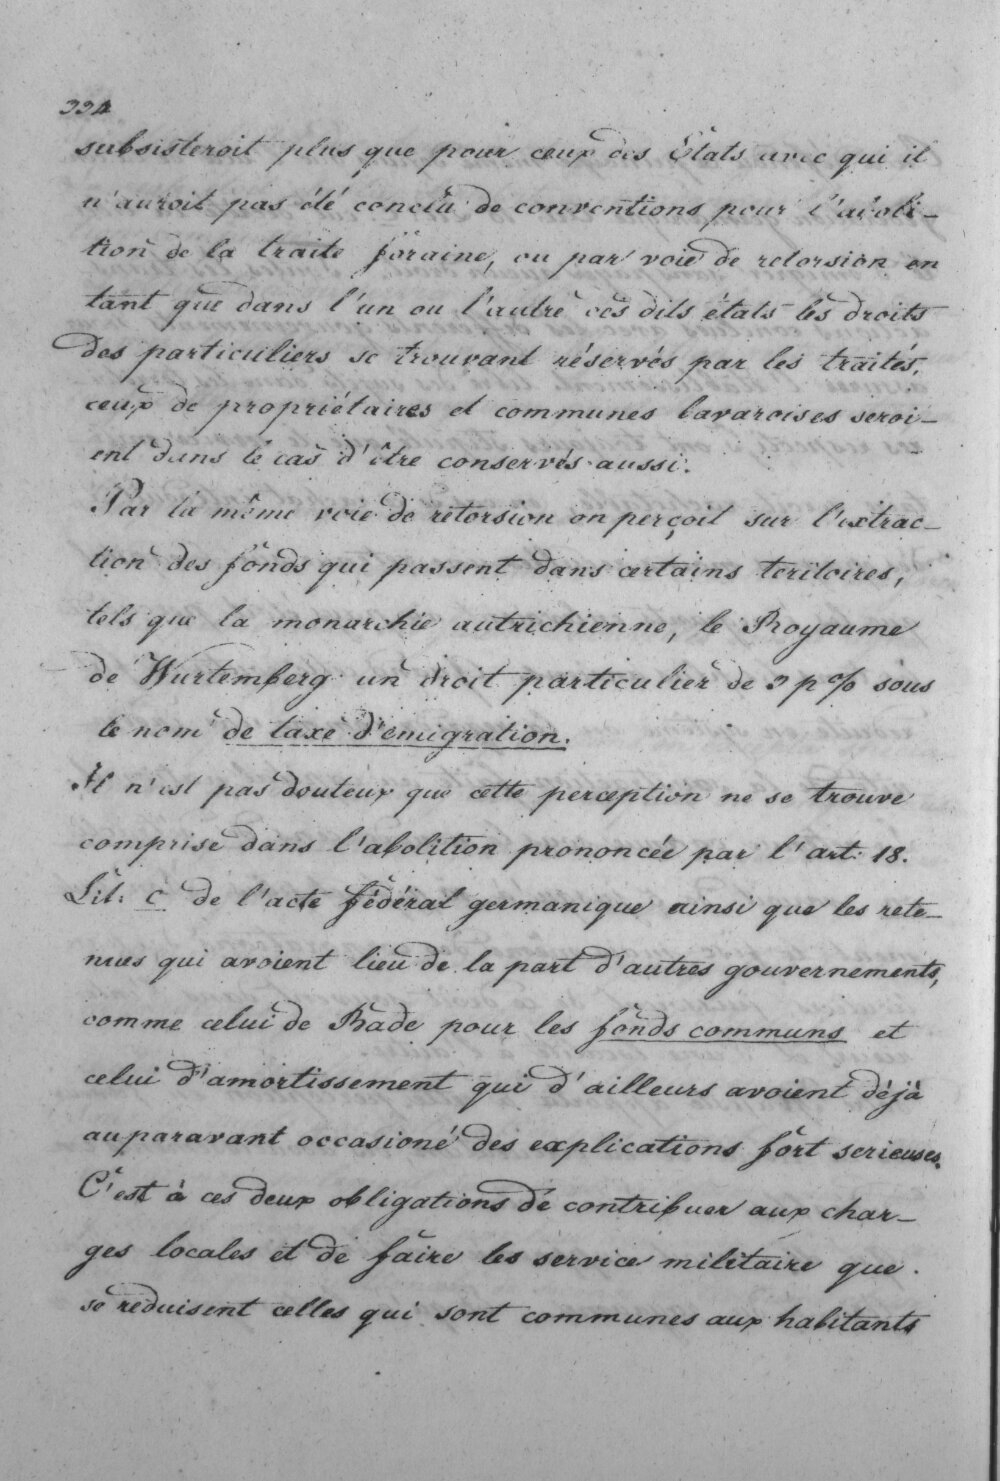 334
subsisteroit plus que pour ceux des États avec qui il
n'auroit pas été conclu de conventions pour l'aboli-
tion de la traite foraine, ou par voie de retorsion en
tant que dans l'un ou l'autre ces dits états les droits
des particuliers se trouvant réservés par les traités,
ceux de propriétaires et communes bavaroises seroi-
ent dans le cas d'être conservés aussi.
Par la même voie de rétorsion on perçoit sur l'extrac-
tion des fonds qui passent dans certains teritoires,
tels que la monarchie autrichienne, le Royaume
de Wurtemberg un droit particulier de 3 p% sous
le nom de taxe d'emigration.
Il n'est pas douteux que cette perception ne se trouve
comprise dans l'abolition prononcée par l'art: 18.
Lit: C de l'acte fédéral germanique ainsi que les rete-
nues qui avoient lieu de la part d'autres gouvernements,
comme celui de Bade pour les fonds communs et
celui d'amortissement qui d'ailleurs avoient déjà
auparavant occasioné des explications fort serieuses.
C'est à ces deux obligations de contribuer aux char-
ges locales et de faire les service militaire que
se reduisent celles qui sont communes aux habitants